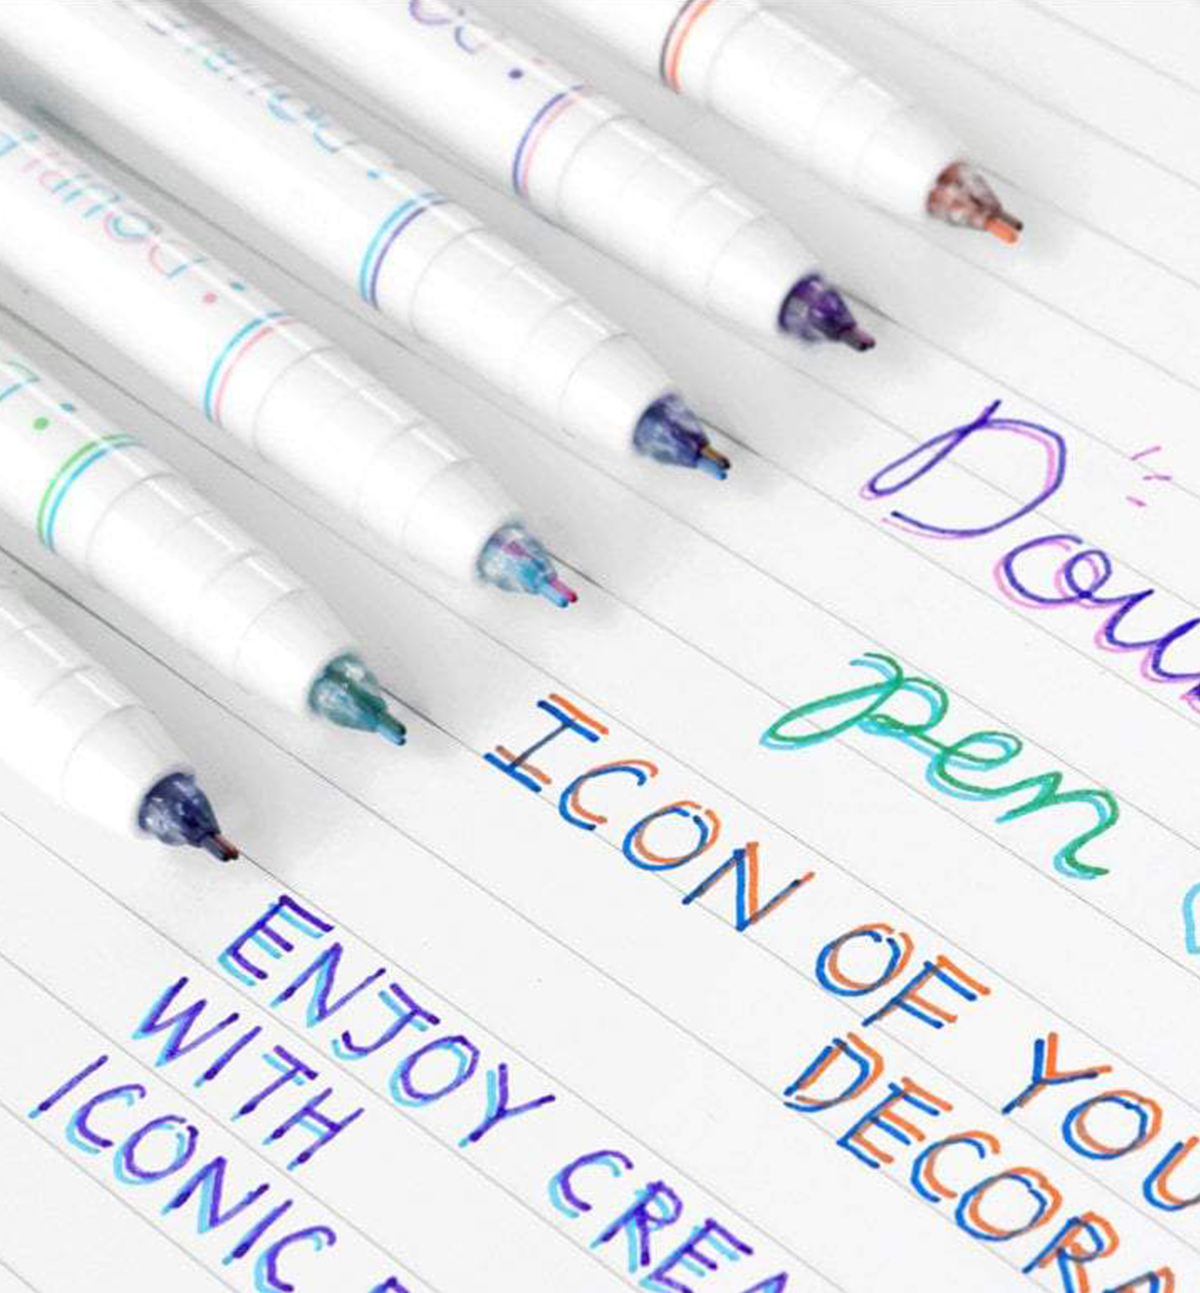 Dou
pen
ICON OF YOU
DECORA
ENJOY CREA
WITH
ICONIC